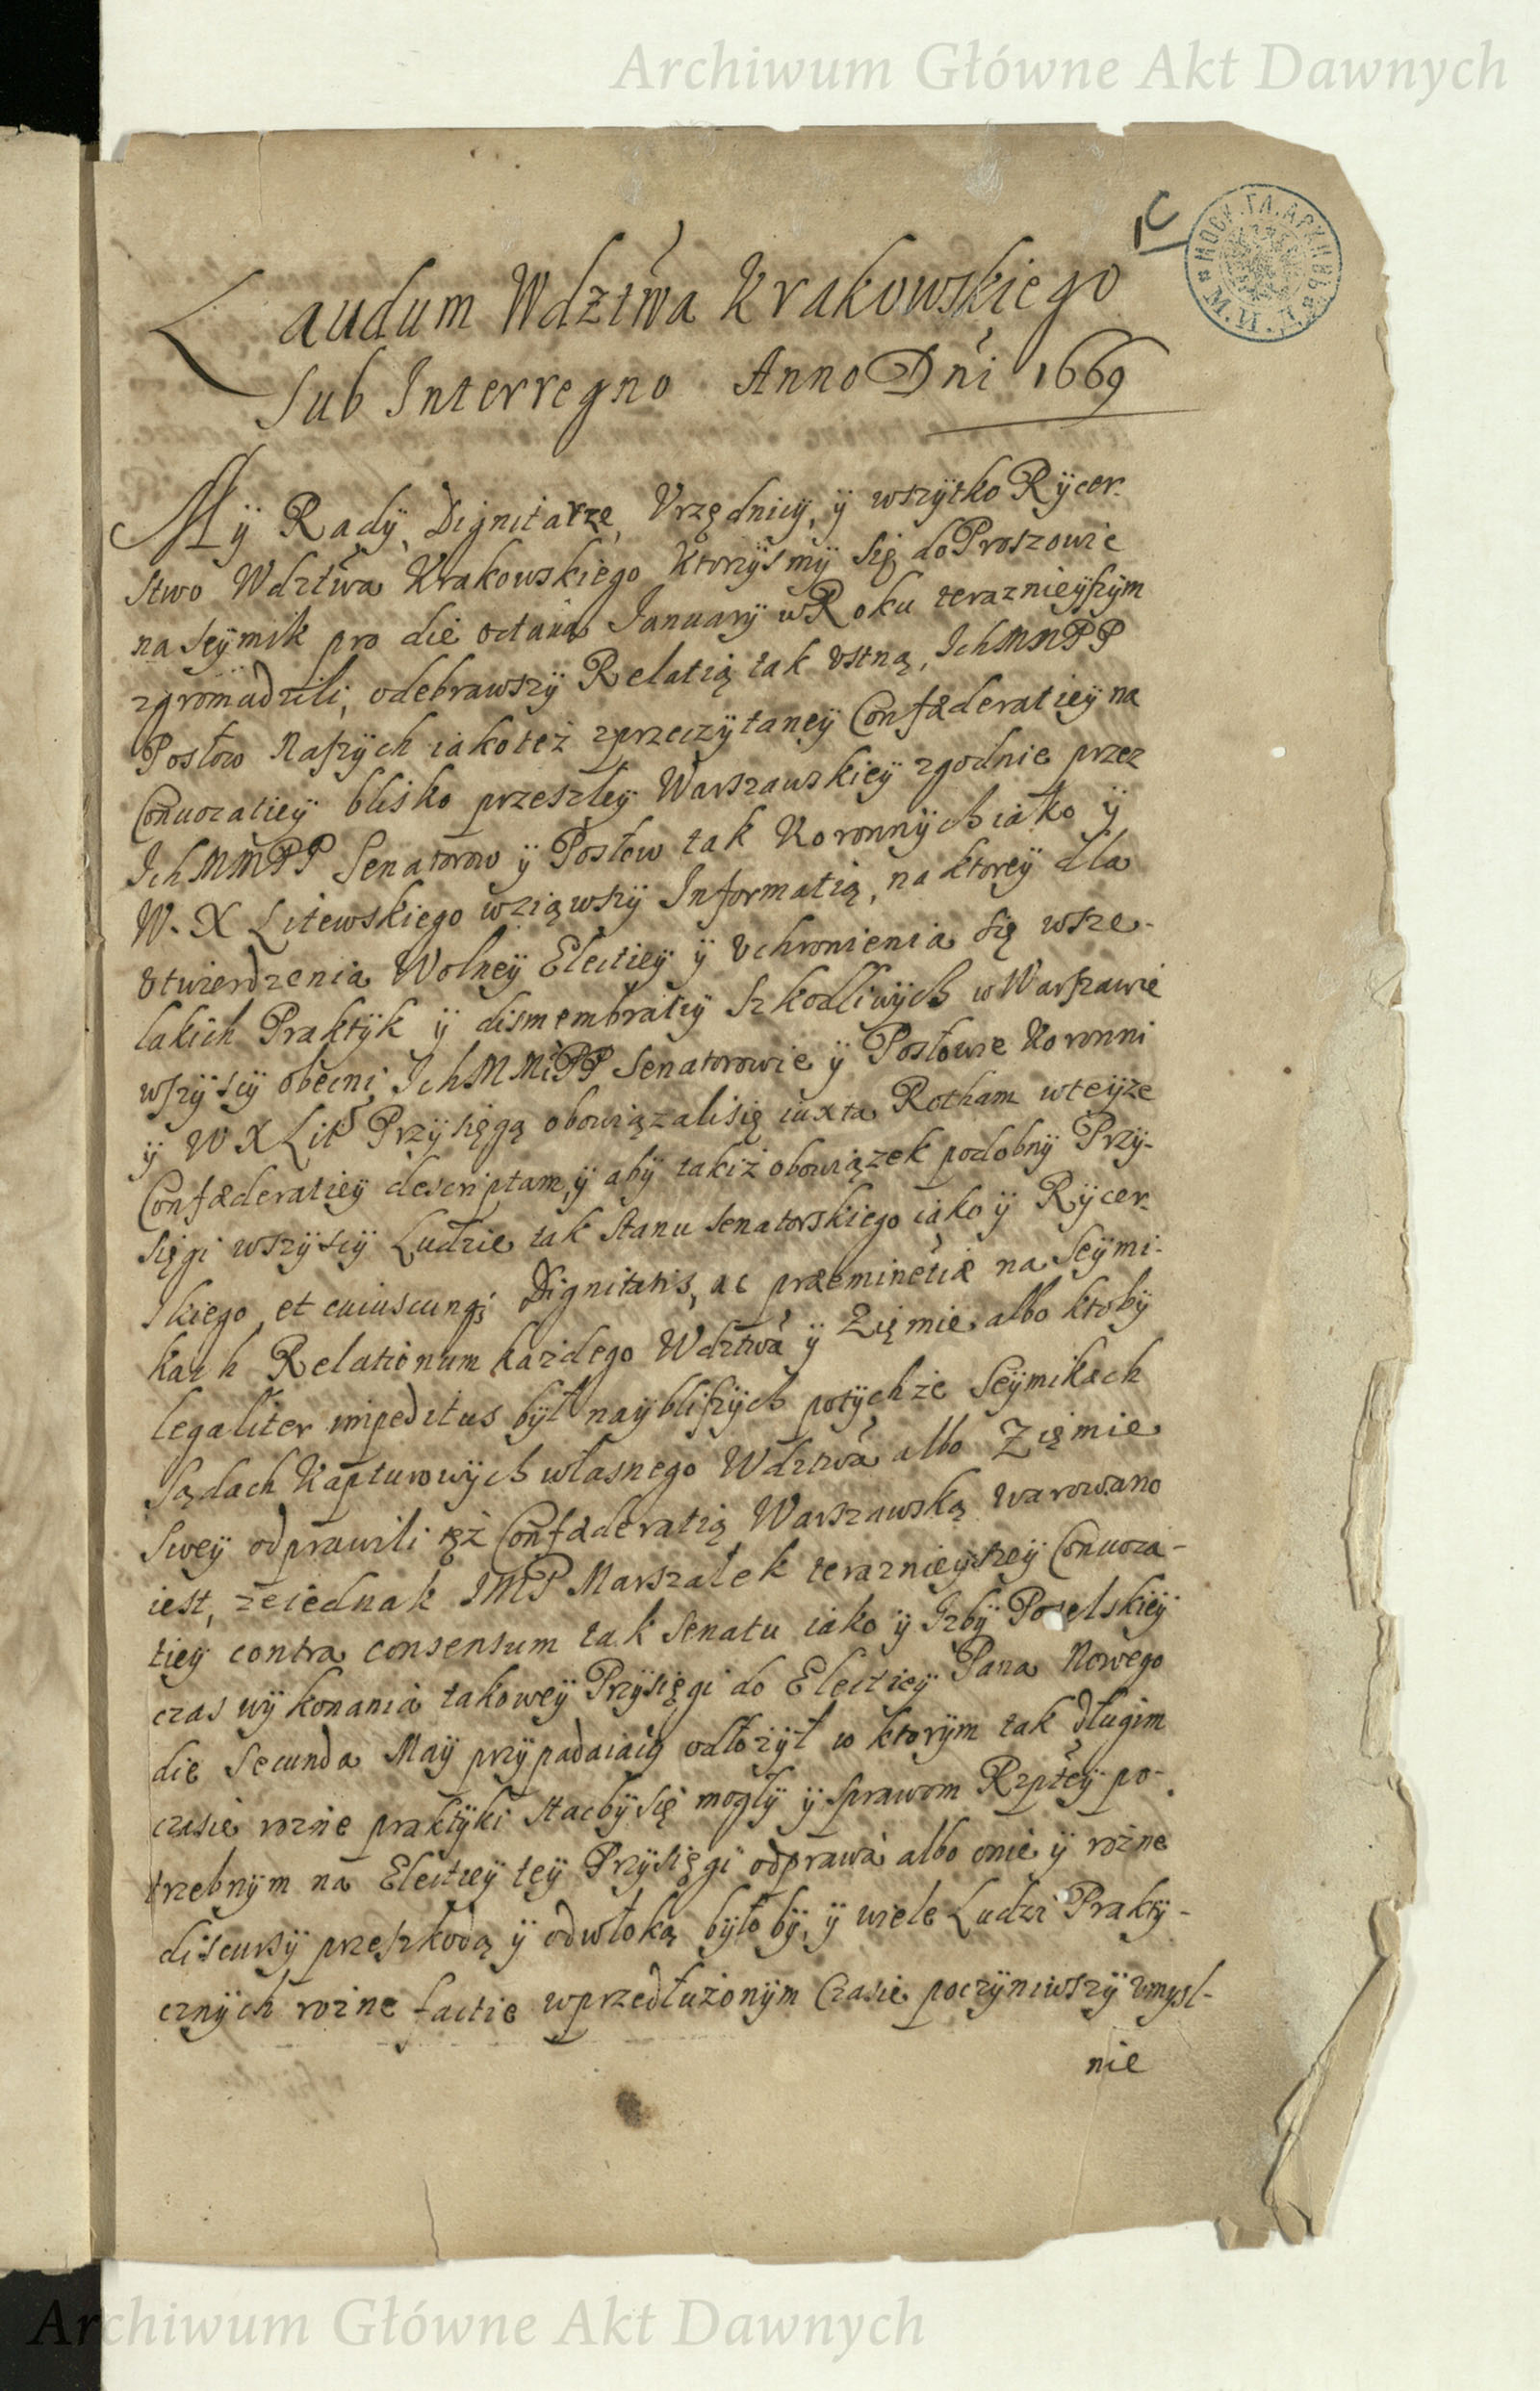 Archiwum Główne Akt Dawnych
Laudum Wdztwa Krakowskiego
Sub Interregno Anno Dni 1669
МОСК. ГЛ. АРХИВЪ М.И.Д.
Mÿ Radÿ, Dignitarze, Vrzędnicÿ, ÿ wszÿtko Rÿcer-
stwo Wdztwa Krakowskiego Ktorzÿsmÿ się do Proszowic
na Seÿmik pro die octaua Januarÿ w Roku teraznieÿszÿm
zgromadzili, odebrawszÿ Relatią tak Vstną, Ich MM PP
Posłow Naszÿch iako też z przeczÿtaneÿ Confæderatieÿ na
Conuocatieÿ blisko przeszłeÿ Warszauskieÿ zgodnie przez
Ich MM PP Senatorow ÿ Posłow tak Koronnÿch iako ÿ
W. X Litewskiego wziąwszÿ Informatią, na ktoreÿ dla
Vtwierdzenia Wolneÿ Electieÿ ÿ Vchronienia się wsze-
lakich Praktÿk ÿ dismembratiÿ Szkodliwÿch w Warszawie
wszÿscÿ obecni Ich MM PP Senatorowie ÿ Posłowie Koronni
ÿ W X Lit Przÿsięgą obowiązali się iuxta Rotham w teÿze
Confæderatieÿ descriptam, ÿ abÿ takiż obowiązek podobnÿ Przÿ-
sięgi wszÿscÿ Ludzie tak stanu senatorskiego iako ÿ Rÿcer-
skiego, et cuiuscunqz Dignitatis, ac præminetiæ na Seÿmi-
kach Relationum każdego Wdztwa ÿ Ziemie albo ktobÿ
legaliter impeditus bÿł naÿbliszÿch po tÿchże Seÿmikach
Sądach Kapturowÿch własnego Wdztwa albo Ziemie
Sweÿ odprawili iż Confæderatią Warszawską warowano
iest, że iednak IMP Marszałek teraznieÿszeÿ Conuoca-
tieÿ contra consensum tak Senatu iako ÿ Izbÿ Poselskieÿ
czas wÿkonania takoweÿ Przÿsięgi do Electieÿ Pana Nowego
die Secunda Maÿ przÿpadaiącÿ odłożÿł w ktorÿm tak długim
czasie rozne praktÿki stacbÿ się mogłÿ ÿ sprawom Rzpteÿ po-
trzebnÿm na Electieÿ teÿ Przÿsięgi odprawa albo onie ÿ rożne
discursÿ przeszkodą ÿ odwłoką bÿłobÿ, ÿ wiele Ludzi Praktÿ-
cznÿch rożne factie w przedłużonÿm Czasie poczÿniwszÿ vmÿsl-
nie
Archiwum Główne Akt Dawnych